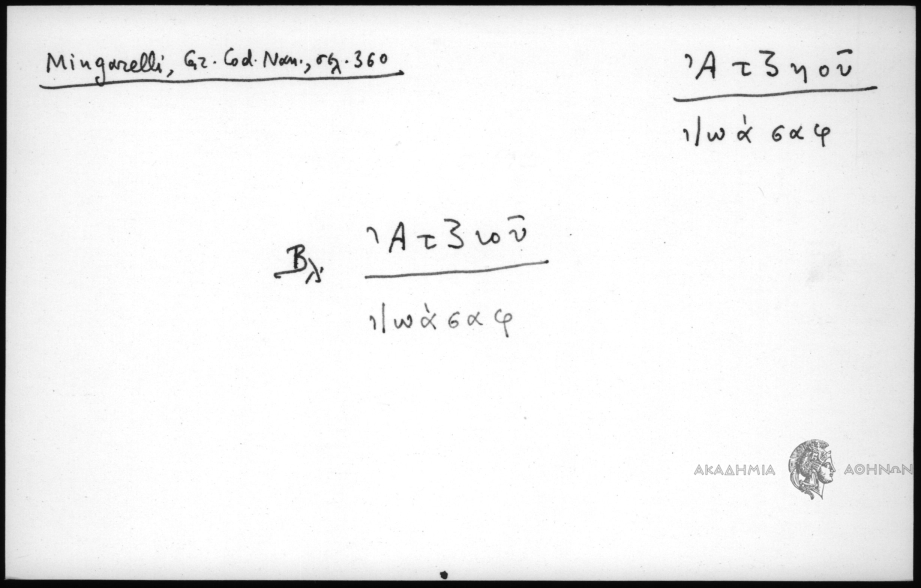 Mingarelli, Gr. Cod. Nan., σελ. 360
Ἀτζηοῦ
Ἰωάσαφ
Βλ. Ἀτζιοῦ
Ἰωάσαφ
ΑΚΑΔΗΜΙΑ ΑΘΗΝΩΝ